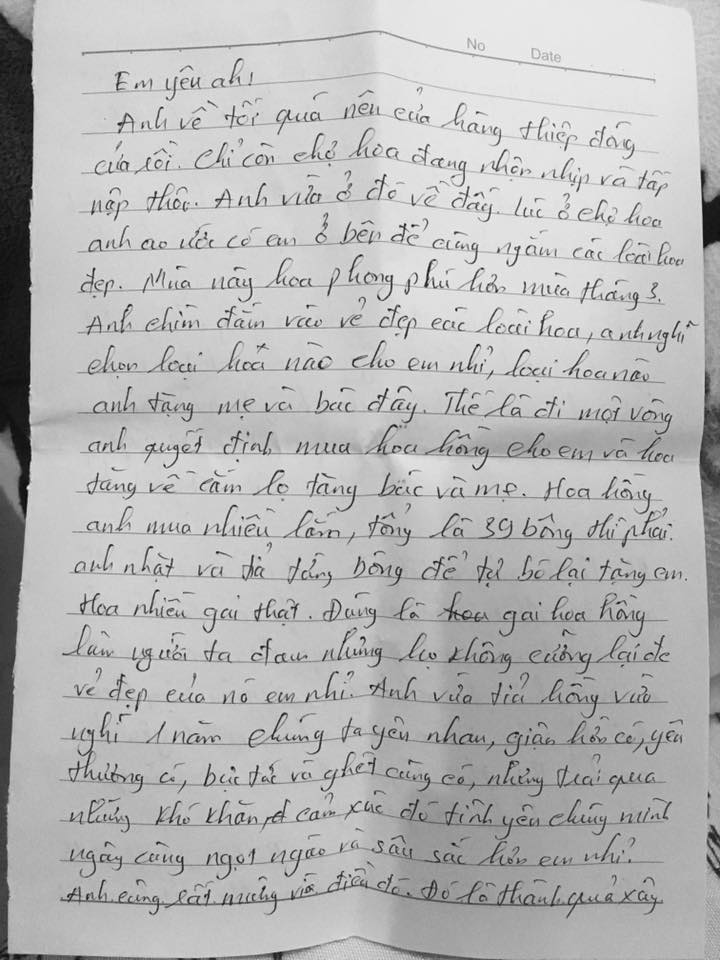 No Date
Em yêu ah!
Anh về tối quá nên cửa hàng thiệp đóng
cửa rồi. Chỉ còn chợ hoa đang nhộn nhịp và tấp
nập thôi. Anh vừa ở đó về đấy. Lúc ở chợ hoa
anh ao ước có em ở bên để cùng ngắm các loài hoa
đẹp. Mùa này hoa phong phú hơn mùa tháng 3.
Anh chìm đắm vào vẻ đẹp các loài hoa, anh nghĩ
chọn loại hoa nào cho em nhỉ, loại hoa nào
anh tặng mẹ và bác đây. Thế là đi một vòng
anh quyết định mua hoa hồng cho em và hoa
tặng về cắm lọ tặng bác và mẹ. Hoa hồng
anh mua nhiều lắm, tổng là 39 bông thì phải.
anh nhặt và tỉa từng bông để tự bó lại tặng em.
Hoa nhiều gai thật. Đúng là gai hoa hồng
làm người ta đau nhưng họ không cưỡng lại đc
vẻ đẹp của nó em nhỉ. Anh vừa tỉa hồng vừa
nghĩ 1 năm chúng ta yêu nhau, giận hờn có, yêu
thương có, bực tức và ghét cũng có, nhưng trải qua
những khó khăn, cảm xúc đó tình yêu chúng mình
ngày càng ngọt ngào và sâu sắc hơn em nhỉ?
Anh cũng rất mừng với điều đó. Đó là thành quả xây